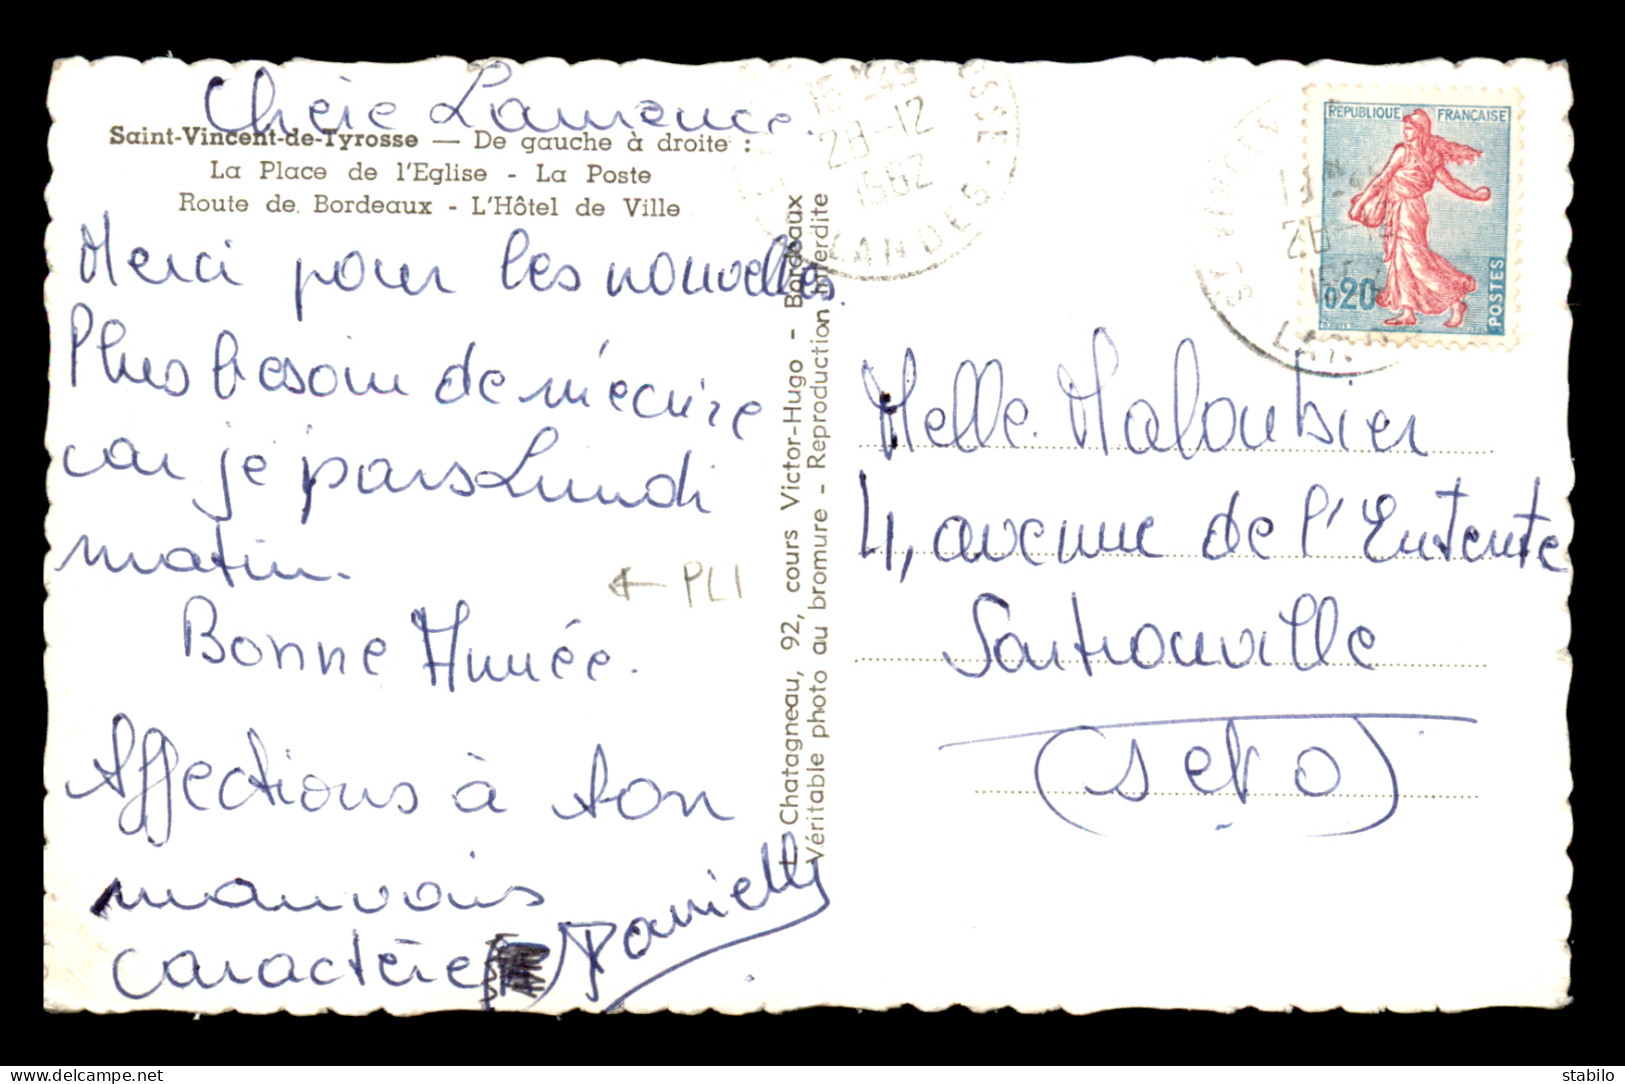 Chérie Laurence.
Saint-Vincent-de-Tyrosse — De gauche à droite :
La Place de l'Eglise - La Poste
Route de Bordeaux - L'Hôtel de Ville
Merci pour les nouvelles.
Plus besoin de m'écrire
car je pars Lundi
matin.
Bonne Année.
Affections à ton
mauvais
caractère
Danielle
← PLI
L. Chatagneau, 92, cours Victor-Hugo - Bordeaux
Véritable photo au bromure - Reproduction interdite
28-12
1962
LANDES
REPUBLIQUE FRANÇAISE
0,20
POSTES
28-12
Melle Maloubier
4, avenue de l'Entente
Sartrouville
(S et O)
stabilo